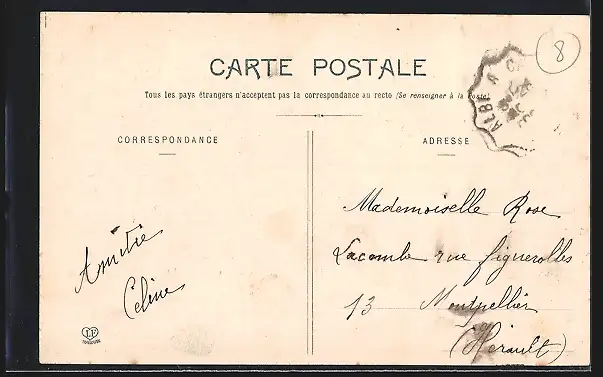 CARTE POSTALE
Tous les pays étrangers n'acceptent pas la correspondance au recto (Se renseigner à la Poste)
8
ALBI A
CORRESPONDANCE
ADRESSE
Amitié
Céline
Mademoiselle Rose
Lacombe rue figuerolles
13 Montpellier
(Hérault)
TOULOUSE